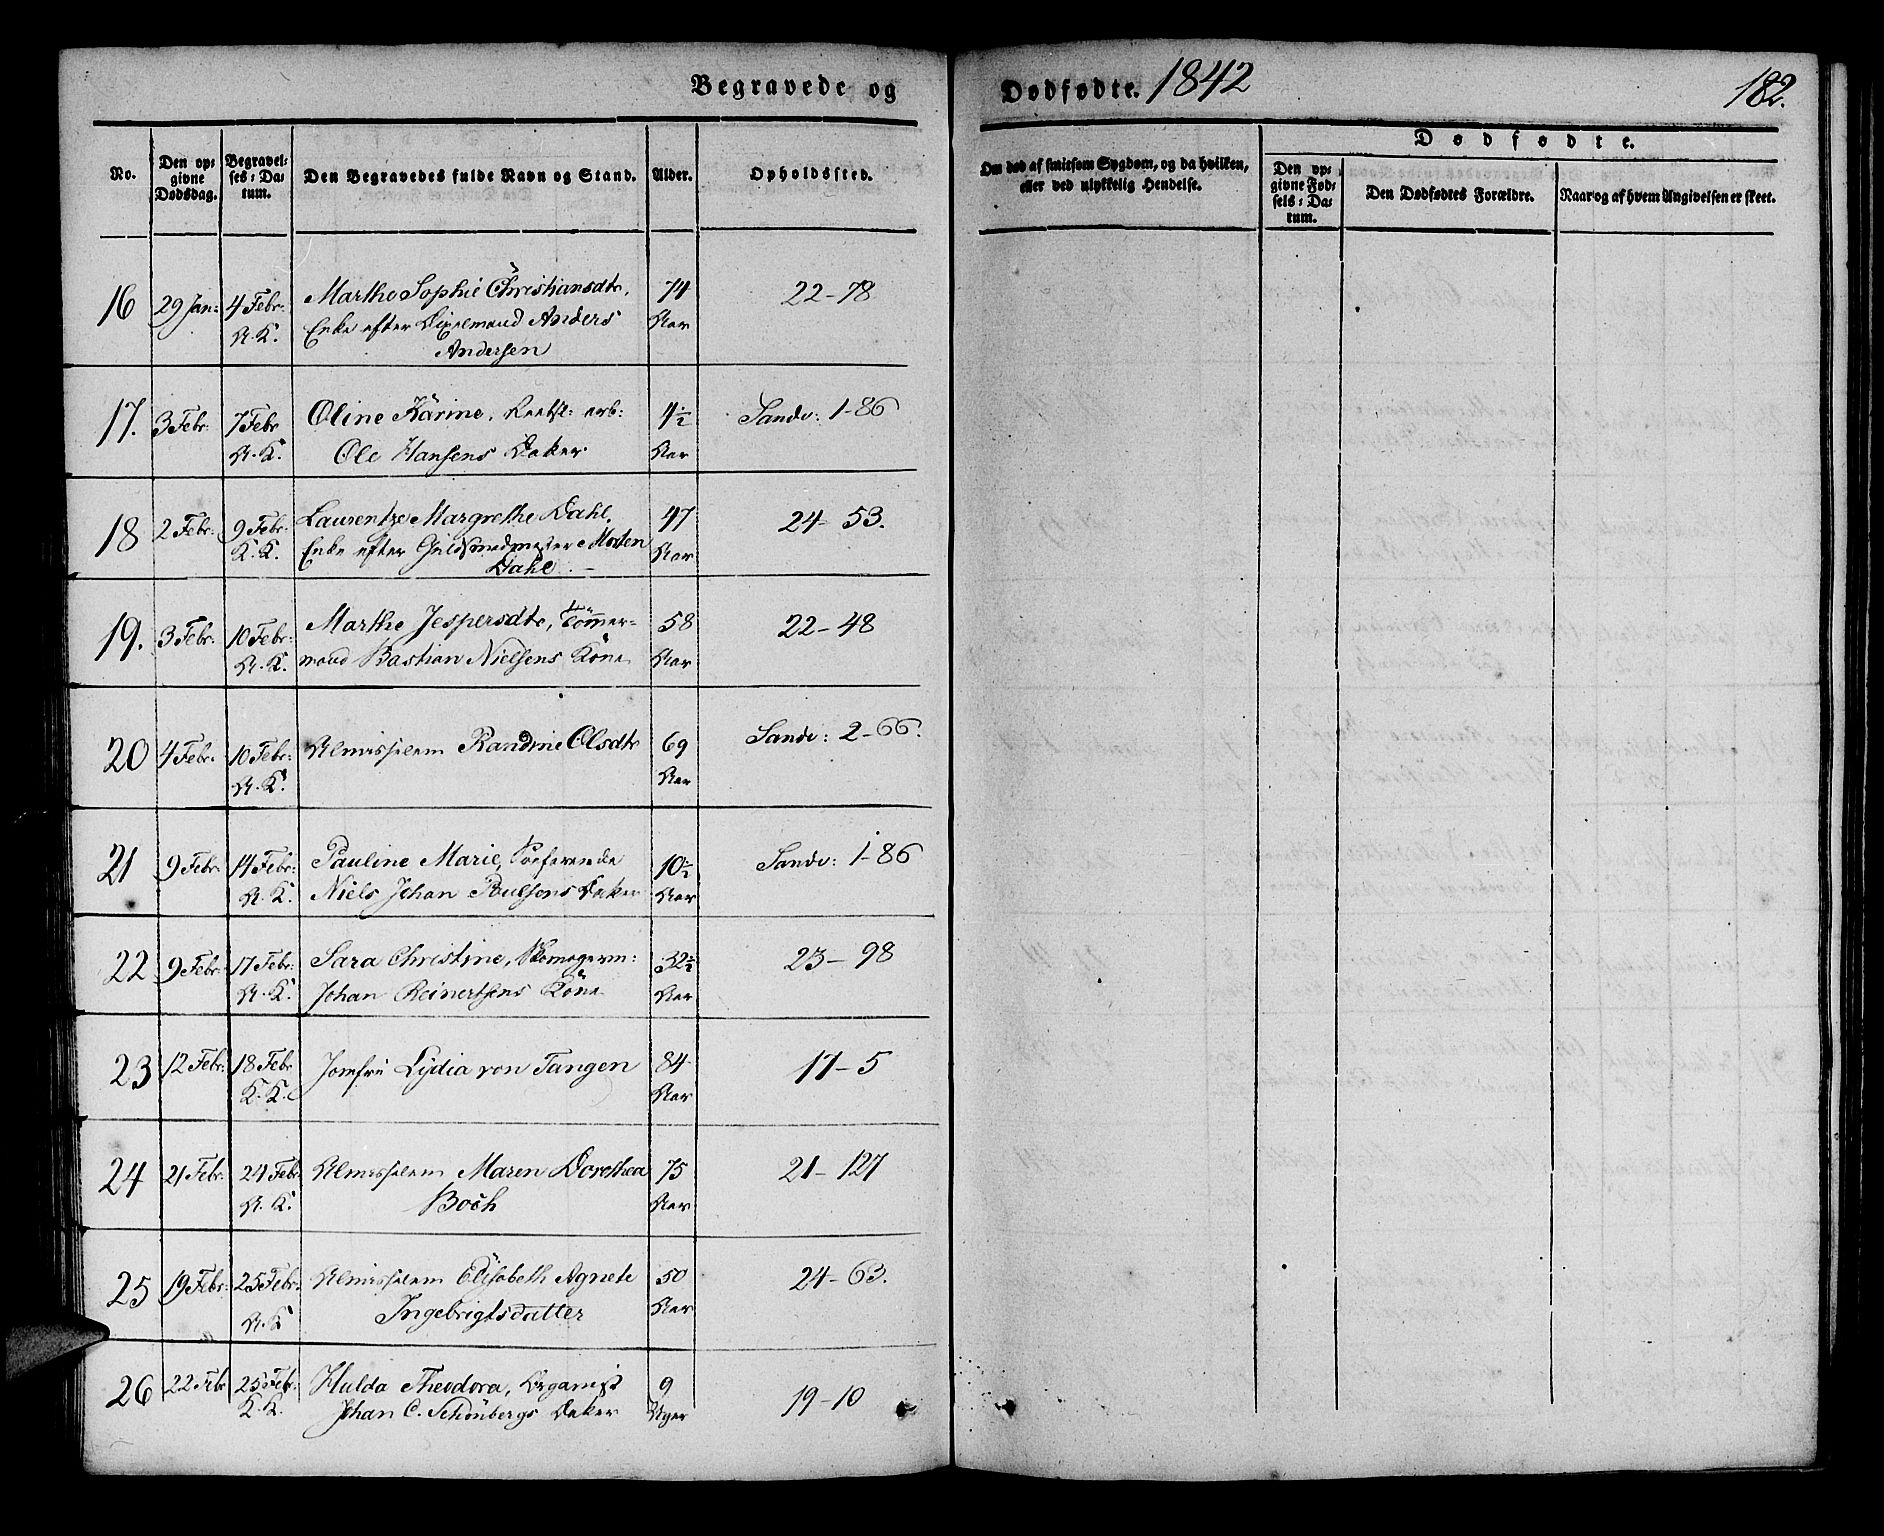 Begravede og Dødfødte. 1842
182.
No.
Den opgivne Dødsdag.
Begravelses-Datum.
Den Begravedes fulde Navn og Stand.
Alder.
Opholdssted.
Om død af smitsom Sygdom, og da hvilken, eller ved ulykkelig Hendelse.
Dødfødte.
Den opgivne Fødsels-Datum.
Den Dødfødtes Forældre.
Naar og af hvem Angivelsen er skeet.
16 29 Jan: 4 Febr: Marthe Sophie Christiansdtr, 74 22-78
N. K. Enke efter Anders Aar
Andersen
17. 3 Febr: 7 Febr Oline Karine, arb: 4½ Sandv: 1-86
N. K. Ole Hansens Datter Aar
18 2 Febr: 9 Febr: Laurentze Margrethe Dahl, 47 24-53.
K. K. Enke efter Guldsmedmester Morten Aar
Dahl. -
19. 3 Febr: 10 Febr: Marthe Jespersdtr, Tømmer- 58 22-48
N. K. mand Bastian Nielsens Kone Aar
20 4 Febr. 10 Febr: Almisselem Randine Olsdtr 69 Sandv: 2-66.
N. K. Aar
21 9 Febr: 14 Febr: Pauline Marie, Søefarende 10½ Sandv: 1-86
N. K. Niels Johan Poulsens Datter Aar
22 9 Febr: 17 Febr: Sara Christine, Skomagerm: 32½ 23-98
N. K. Johan Reinertsens Kone Aar
23 12 Febr: 18 Febr Jomfru Lydia von Tangen 84 17-5
K. K. Aar
24 21 Febr. 24 Febr. Almisselem Maren Dorethea 75 21-127
N. K. Boch Aar
25 19 Febr: 25 Febr. Almisselem Elisabeth Agnete 50 24-63.
N. K Ingebrigtsdatter Aar
26 22 Febr 25 Febr. Hulda Theodora, Organist 9 19-10
K. K. Johan C. Schönbergs Datter Uger